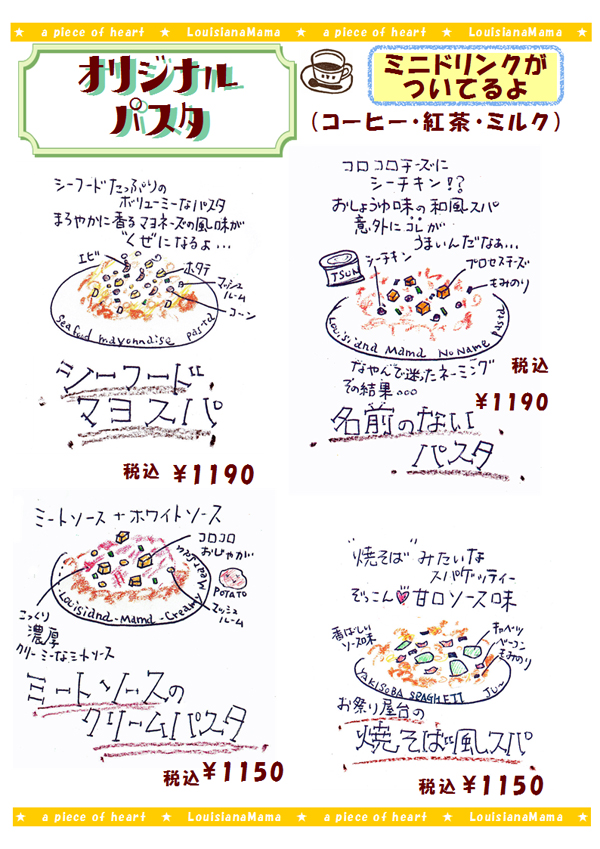 ★ a piece of heart ★ LouisianaMama ★ a piece of heart ★ LouisianaMama ★
オリジナル
パスタ
ミニドリンクが
ついてるよ
(コーヒー・紅茶・ミルク)
シーフードたっぷりの
ボリューミーなパスタ
まろやかに香るマヨネーズの風味が
くせになるよ...
エビ
ホタテ
マッシュ
ルーム
コーン
Seafood mayonnaise pasta
シーフード
マヨスパ
税込 ¥1190
コロコロチーズに
シーチキン!?
おしょうゆ味の和風スパ
意外にコレが
うまいんだなぁ...
シーチキン
プロセスチーズ
もみのり
TSUN
Louisiana Mama No Name Pasta
なやんで迷ったネーミング
その結果。。。
名前のない
パスタ
税込
¥1190
ミートソース+ホワイトソース
コロコロ
おじゃが
POTATO
マッシュ
ルーム
Louisiana-Mama-Creamy Meat Pasta
こっくり
濃厚
クリーミーなミートソース
ミートソースの
クリームパスタ
税込 ¥1150
"焼そば"みたいな
スパゲッティー
ぞっこん♥甘口ソース味
香ばしい
ソース味
キャベツ
ベーコン
もみのり
YAKISOBA SPAGHETTI JU〜
お祭り屋台の
焼そば風スパ
税込 ¥1150
★ a piece of heart ★ LouisianaMama ★ a piece of heart ★ LouisianaMama ★